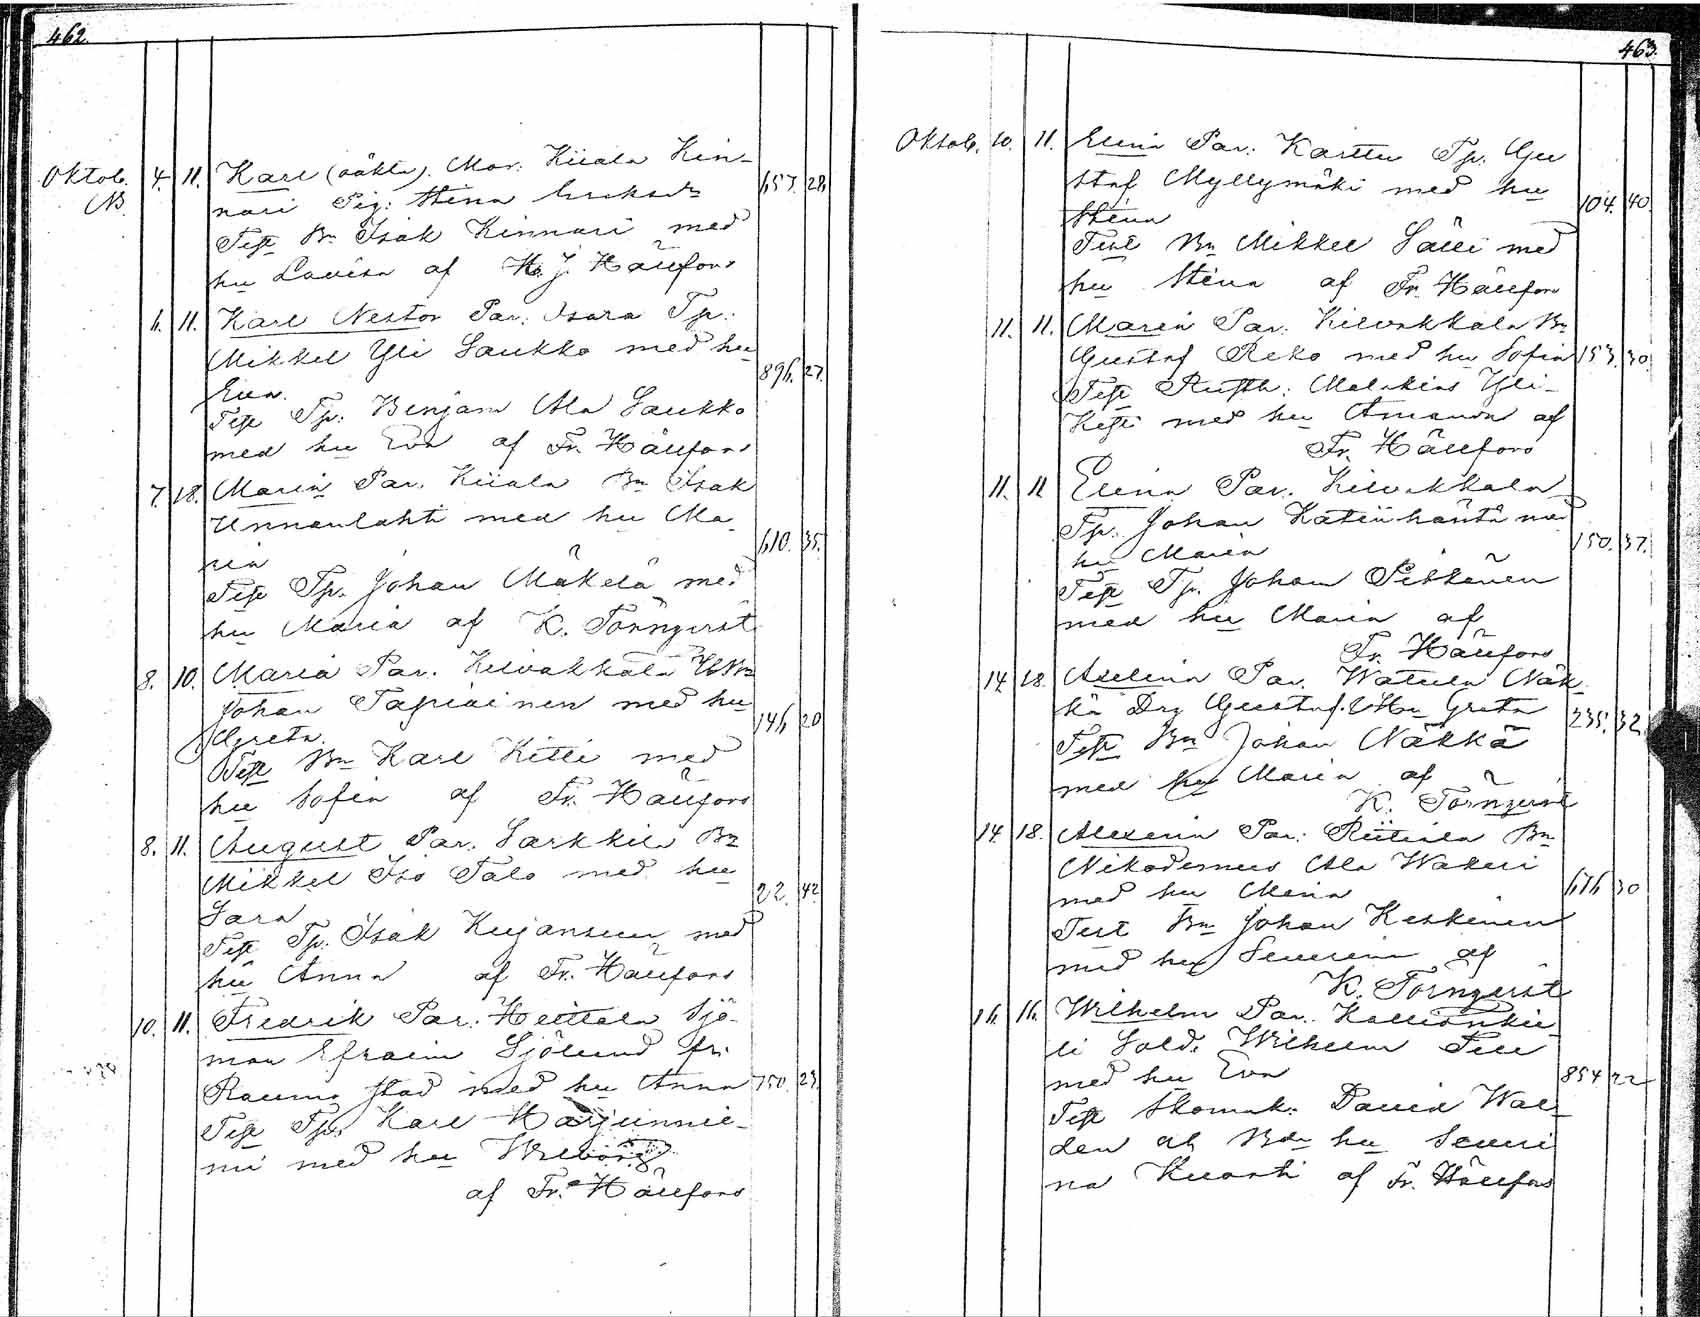 462.
Oktob. 4. 11. Karl (oäkta). Mor: Kiiala Kin-
NB
nari Pig: Stina Eriksdr 657. 28
Test Bn Isak Kinnari med
hu Lovisa af K. J. Hällfors
6. 11. Karl Nestor Par: Isara Tp:
Mikkel Yli Laukko med hu 896. 27.
Eva.
Test Tp: Benjam Ala Laukko
med hu Eva af Fr. Hällfors
7. 18. Maria Par. Kiiala Bn Isak
Unnanlahti med hu Ma- 610. 35.
ria
Test Tp. Johan Mäkelä med
hu Maria af K. Törnqvist
8. 10. Maria Par. Kilvakkala
Johan Tapiainen med hu 146 20
Greta.
Test Bn Karl Kitti med
hu Sofia af Fr. Hällfors
8. 11. August Par. Sarkkila Bn
Mikkel Iso Talo med hu 22. 42
Sara
Test Tp. Isak Kujansuu med
hu Anna af Fr. Hällfors
10. 11. Fredrik Par. Heittola Sjö-
man Efraim Sjölund fr.
Raumo stad med hu Anna 750. 23.
Test Tp. Karl Harjunnie-
mi med hu Wilborg
af Fr. Hällfors
463.
Oktob. 10. 11. Elina Par: Karttu Tp. Gu
staf Myllymäki med hu 104. 40.
Stina
Test Bn Mikkel Sälli med
hu Stina af Fr. Hällfors
11. 11. Maria Par. Kilvakkala Bn
Gustaf Reko med hu Sofia 153. 30.
Test Rusth: Malakias Yli-
Kesti med hu Amanda af
Fr. Hällfors
11. 11 Elina Par. Kilvakkala
Tp. Johan Katiinhäntä med 150. 37.
hu Maria
Test Tp. Johan Pitkänen
med hu Maria af
Fr. Hällfors
14. 18. Axelina Par. Watula Näk-
kä Drg Gustaf. & Hu Greta 235. 32.
Test Bn Johan Näkkä
med hu Maria af
K. Törnqvist
14. 18. Alexina Par: Riitiala Bn
Nikodemus Ala Wakeri
med hu Maria 676 30
Test Bn Johan Keskinen
med hu Severina af
K. Törnqvist
16. 16. Wilhelm Par. Kallionkie
li Sold. Wilhelm Pell
med hu Eva 854 22
Test Skomak: David Wal-
den at Bdr hu Severi
na Knaarti af Fr. Hällfors